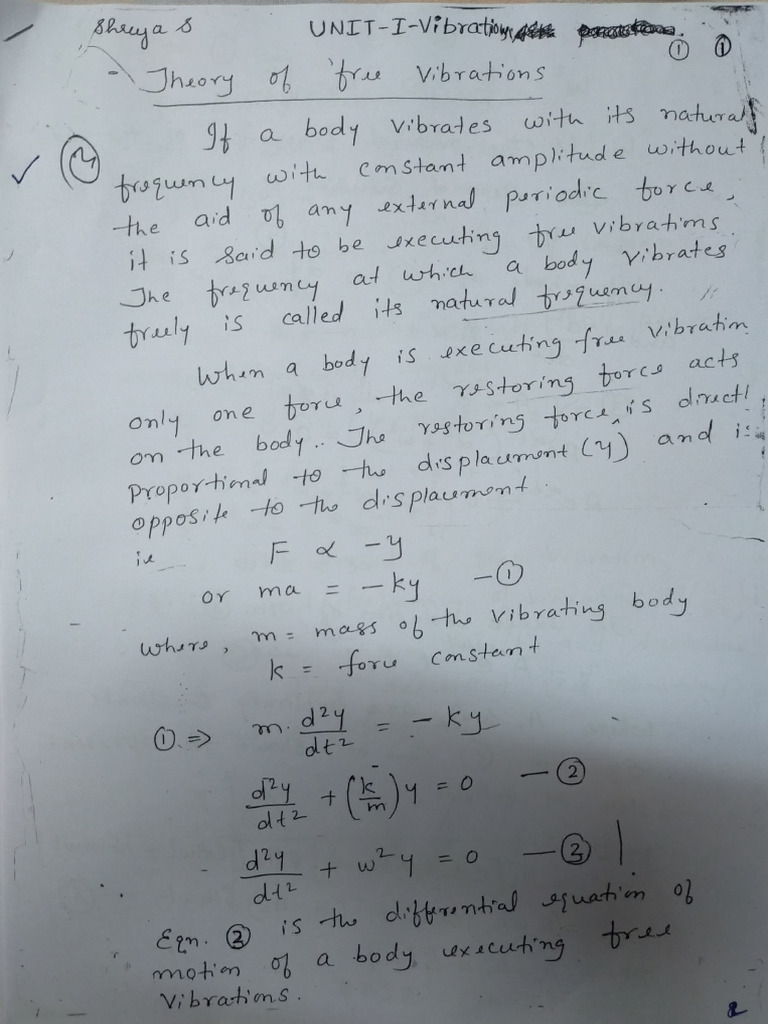 Shreya S UNIT-I-Vibrations ① ①
- Theory of free Vibrations
If a body vibrates with its natural
② frequency with constant amplitude without
the aid of any external periodic force,
it is said to be executing free vibrations.
The frequency at which a body vibrates
freely is called its natural frequency.
When a body is executing free vibration
only one force, the restoring force acts
on the body.. The restoring force is directl
proportional to the displacement (y) and is
opposite to the displacement.
ie F ∝ -y
or ma = -ky -①
where, m = mass of the vibrating body
k = force constant
① ⇒ m. d²y/dt² = - ky
d²y/dt² + (k/m) y = 0 — ②
d²y/dt² + w² y = 0 — ③
Eqn. ③ is the differential equation of
motion of a body executing free
Vibrations.